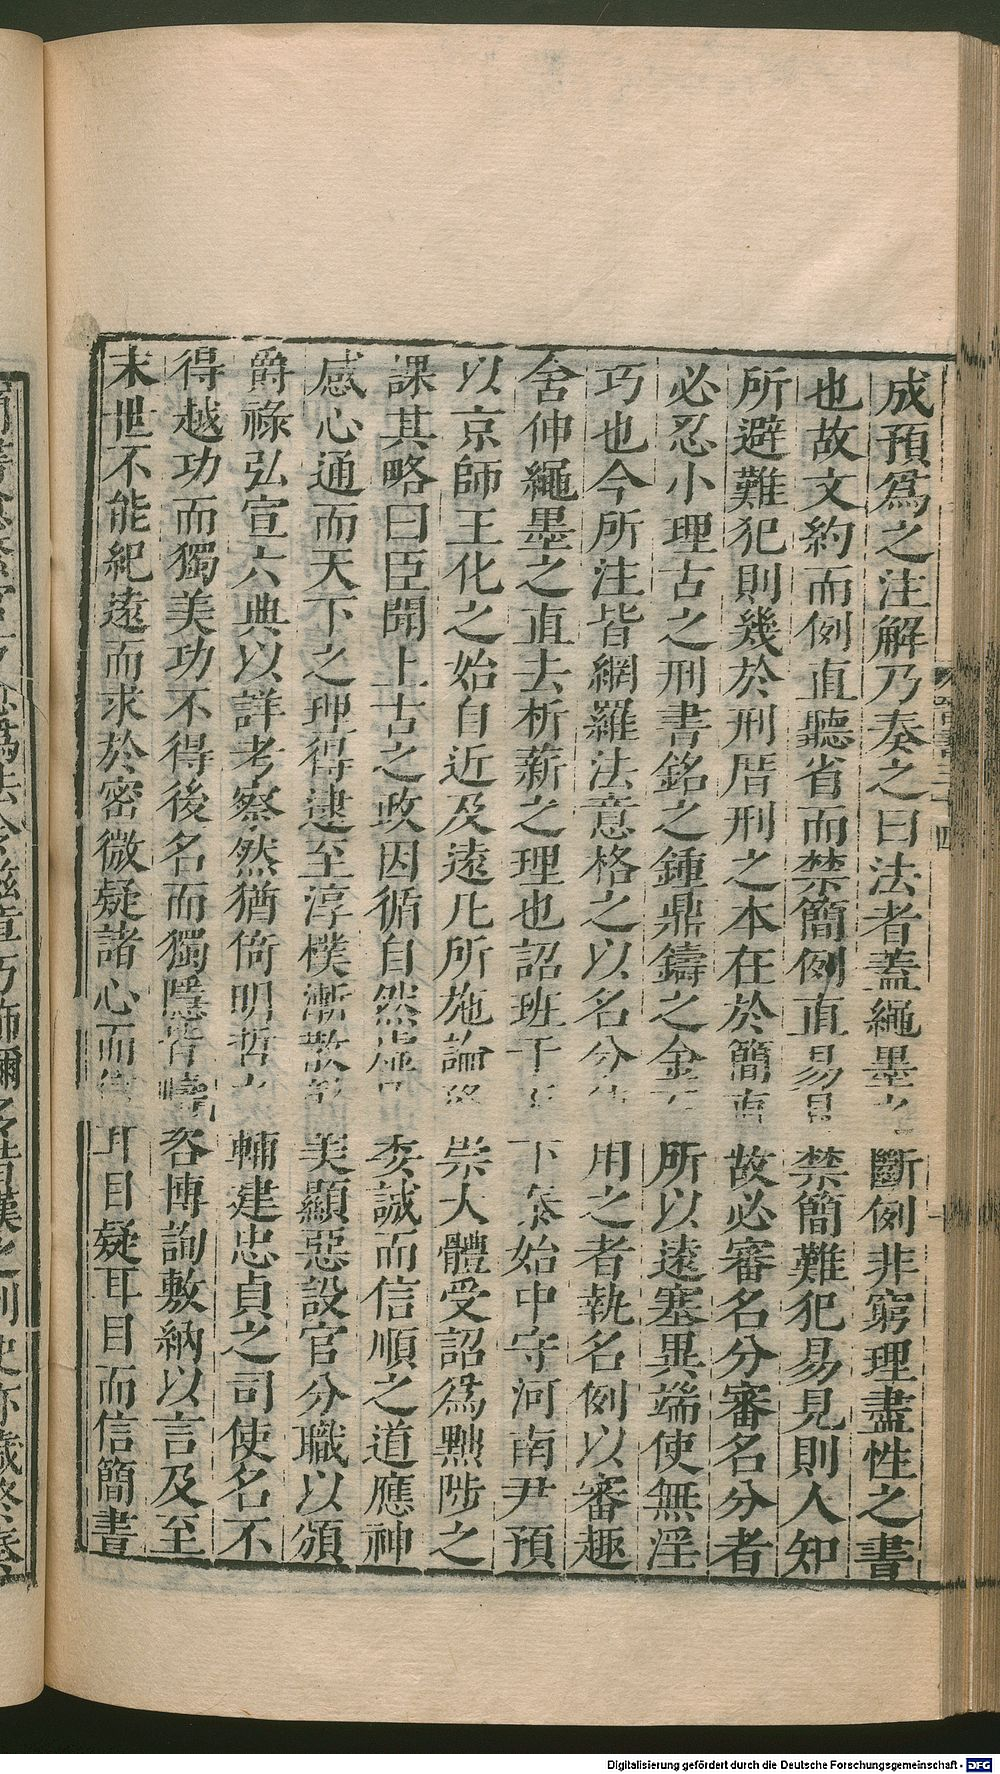 成預爲之注解乃奏之曰法者蓋繩墨之斷例非窮理盡性之書
也故文約而例直聽省而禁簡例直易見禁簡難犯易見則人知
所避難犯則幾於刑厝刑之本在於簡直故必審名分審名分者
必忍小理古之刑書銘之鍾鼎鑄之金石所以遠塞異端使無淫
巧也今所注皆網羅法意格之以名分使用之者執名例以審趣
舍伸繩墨之直去析薪之理也詔班于天下泰始中守河南尹預
以京師王化之始自近及遠凡所施論務崇大體受詔爲黜陟之
課其略曰臣聞上古之政因循自然虛己委誠而信順之道應神
感心通而天下之理得逮至淳樸漸散彰美顯惡設官分職以頒
爵祿弘宣六典以詳考察然猶倚明哲之輔建忠貞之司使名不
得越功而獨美功不得後名而獨隱皆疇咨博詢敷納以言及至
末世不能紀遠而求於密微疑諸心而信耳目疑耳目而信簡書
Digitalisierung gefördert durch die Deutsche Forschungsgemeinschaft - DFG